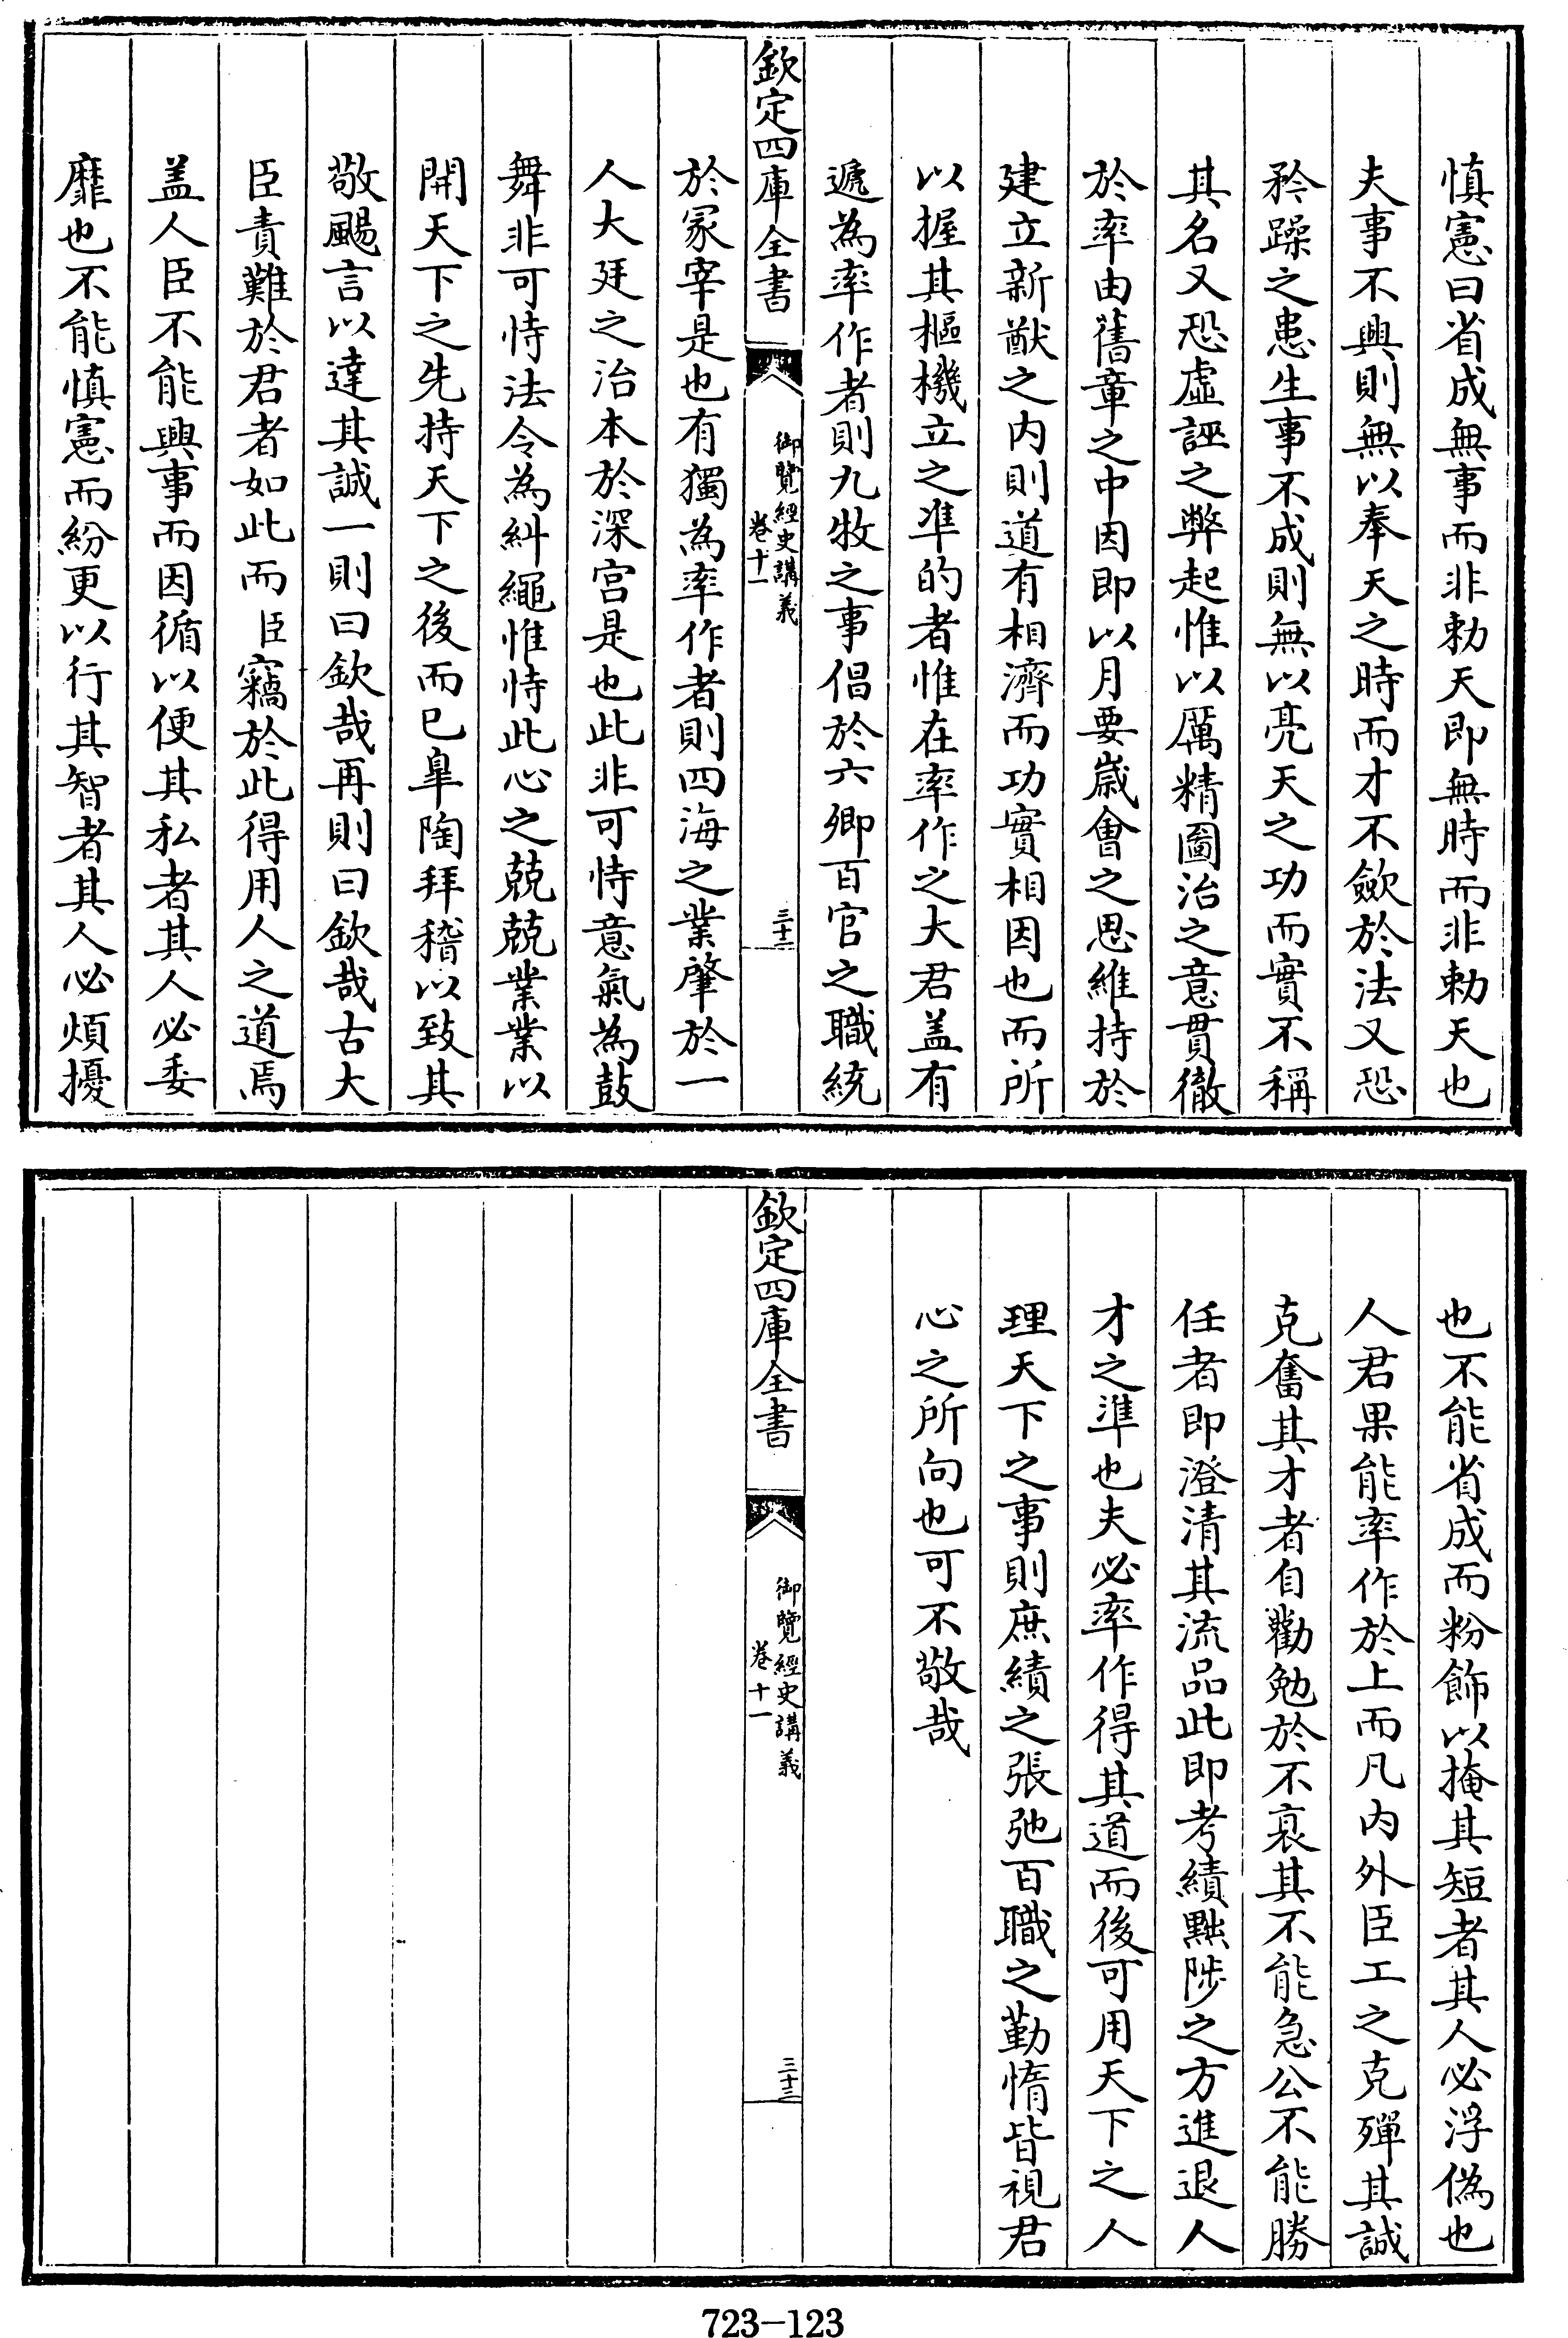 慎憲曰省成無事而非勅天即無時而非勅天也
夫事不興則無以奉天之時而才不歛於法又恐
矜躁之患生事不成則無以亮天之功而實不稱
其名又恐虛誣之弊起惟以厲精圖治之意貫徹
於率由舊章之中因即以月要歲會之思維持於
建立新猷之内則道有相濟而功實相因也而所
以握其樞機立之準的者惟在率作之大君盖有
遞為率作者則九牧之事倡於六卿百官之職統
欽定四庫全書
御覽經史講義
卷十一
三十二
於冢宰是也有獨為率作者則四海之業肇於一
人大廷之治本於深宫是也此非可恃意氣為鼓
舞非可恃法令為糾繩惟恃此心之兢兢業業以
開天下之先持天下之後而已臯陶拜稽以致其
敬颺言以達其誠一則曰欽哉再則曰欽哉古大
臣責難於君者如此而臣竊於此得用人之道焉
盖人臣不能興事而因循以便其私者其人必委
靡也不能慎憲而紛更以行其智者其人必煩擾
也不能省成而粉飾以掩其短者其人必浮偽也
人君果能率作於上而凡内外臣工之克殫其誠
克奮其才者自勸勉於不衰其不能急公不能勝
任者即澄清其流品此即考績黜陟之方進退人
才之準也夫必率作得其道而後可用天下之人
理天下之事則庶績之張弛百職之勤惰皆視君
心之所向也可不敬哉
欽定四庫全書
御覽經史講義
卷十一
三十三
723-123